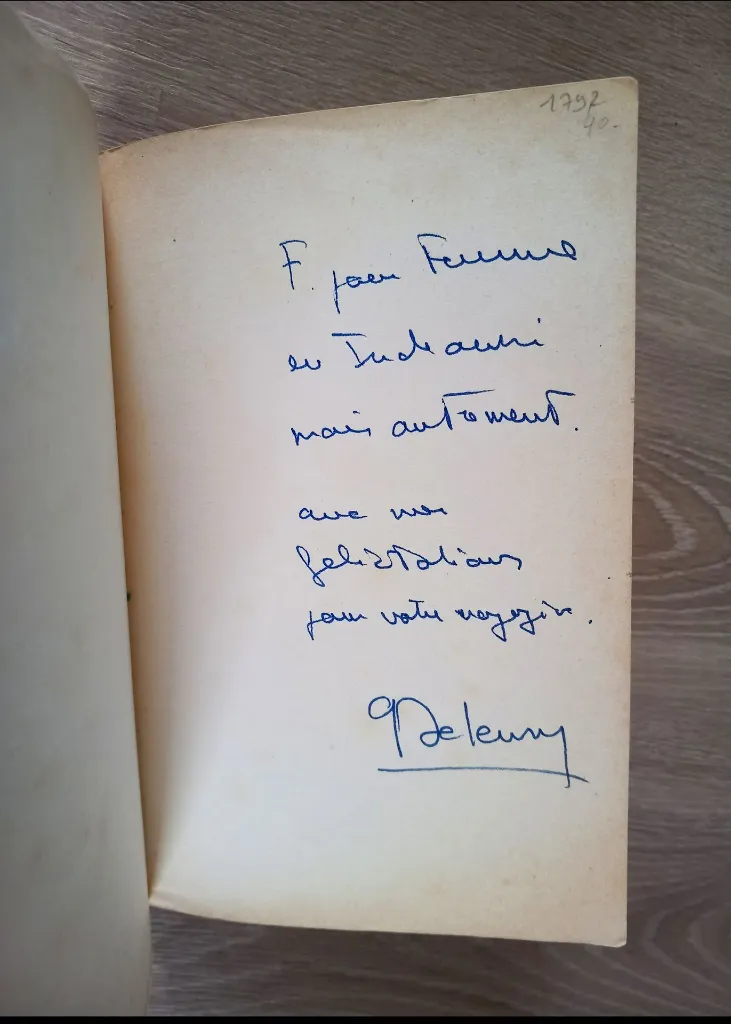 1792
40.
F. pour Femme
en Inde aussi
mais autrement.
avec mes
félicitations
pour votre magazine.
GDeleury